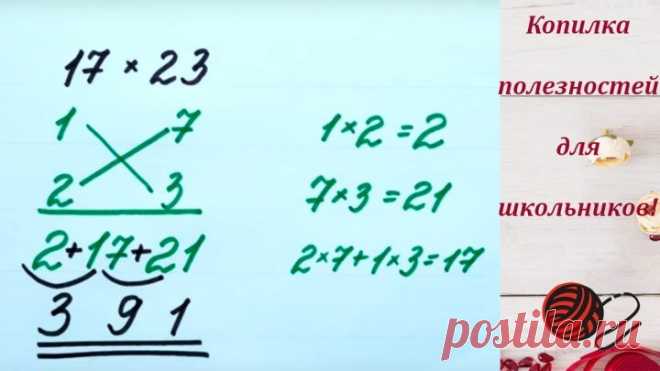 17 × 23
1 7
2 3
2+17+21
3 9 1
1×2=2
7×3=21
2×7+1×3=17
Копилка
полезностей
для
школьников!
postila.ru